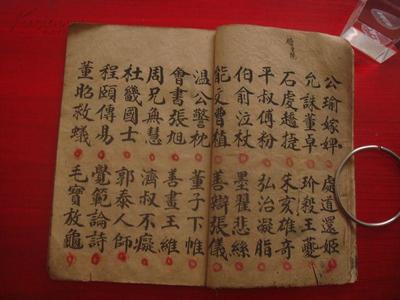 公瑜嫁婢 處道還姬
允誅董卓 玠殺王夔
石虔趫捷 朱亥雄奇
平叔傅粉 弘治凝脂
伯俞泣杖 墨翟悲絲
能文曹植 善辯張儀
温公警枕 董子下帷
會書張旭 善畫王維
周兄無慧 濟叔不癡
杜畿國士 郭泰人師
程頤傳易 覺範論詩
董昭救蟻 毛寶放龜